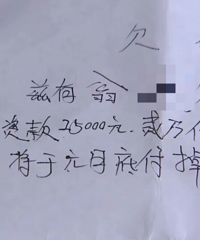 欠
兹有翁
货款25000元.贰万
将于元月底付掉